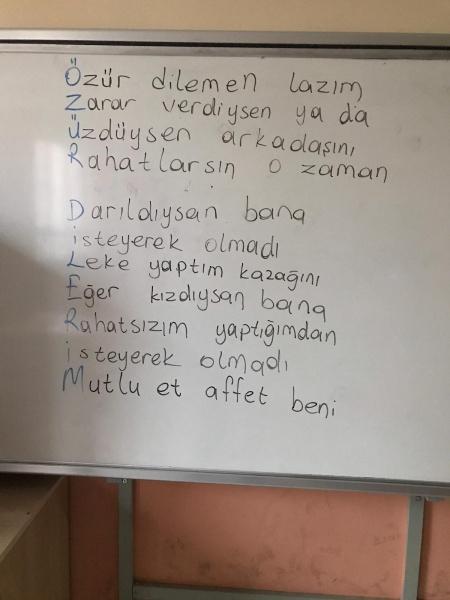 Özür dilemen lazım
Zarar verdiysen ya da
Üzdüysen arkadaşını
Rahatlarsın o zaman
Darıldıysan bana
isteyerek olmadı
Leke yaptım kazağını
Eğer kızdıysan bana
Rahatsızım yaptığımdan
isteyerek olmadı
Mutlu et affet beni